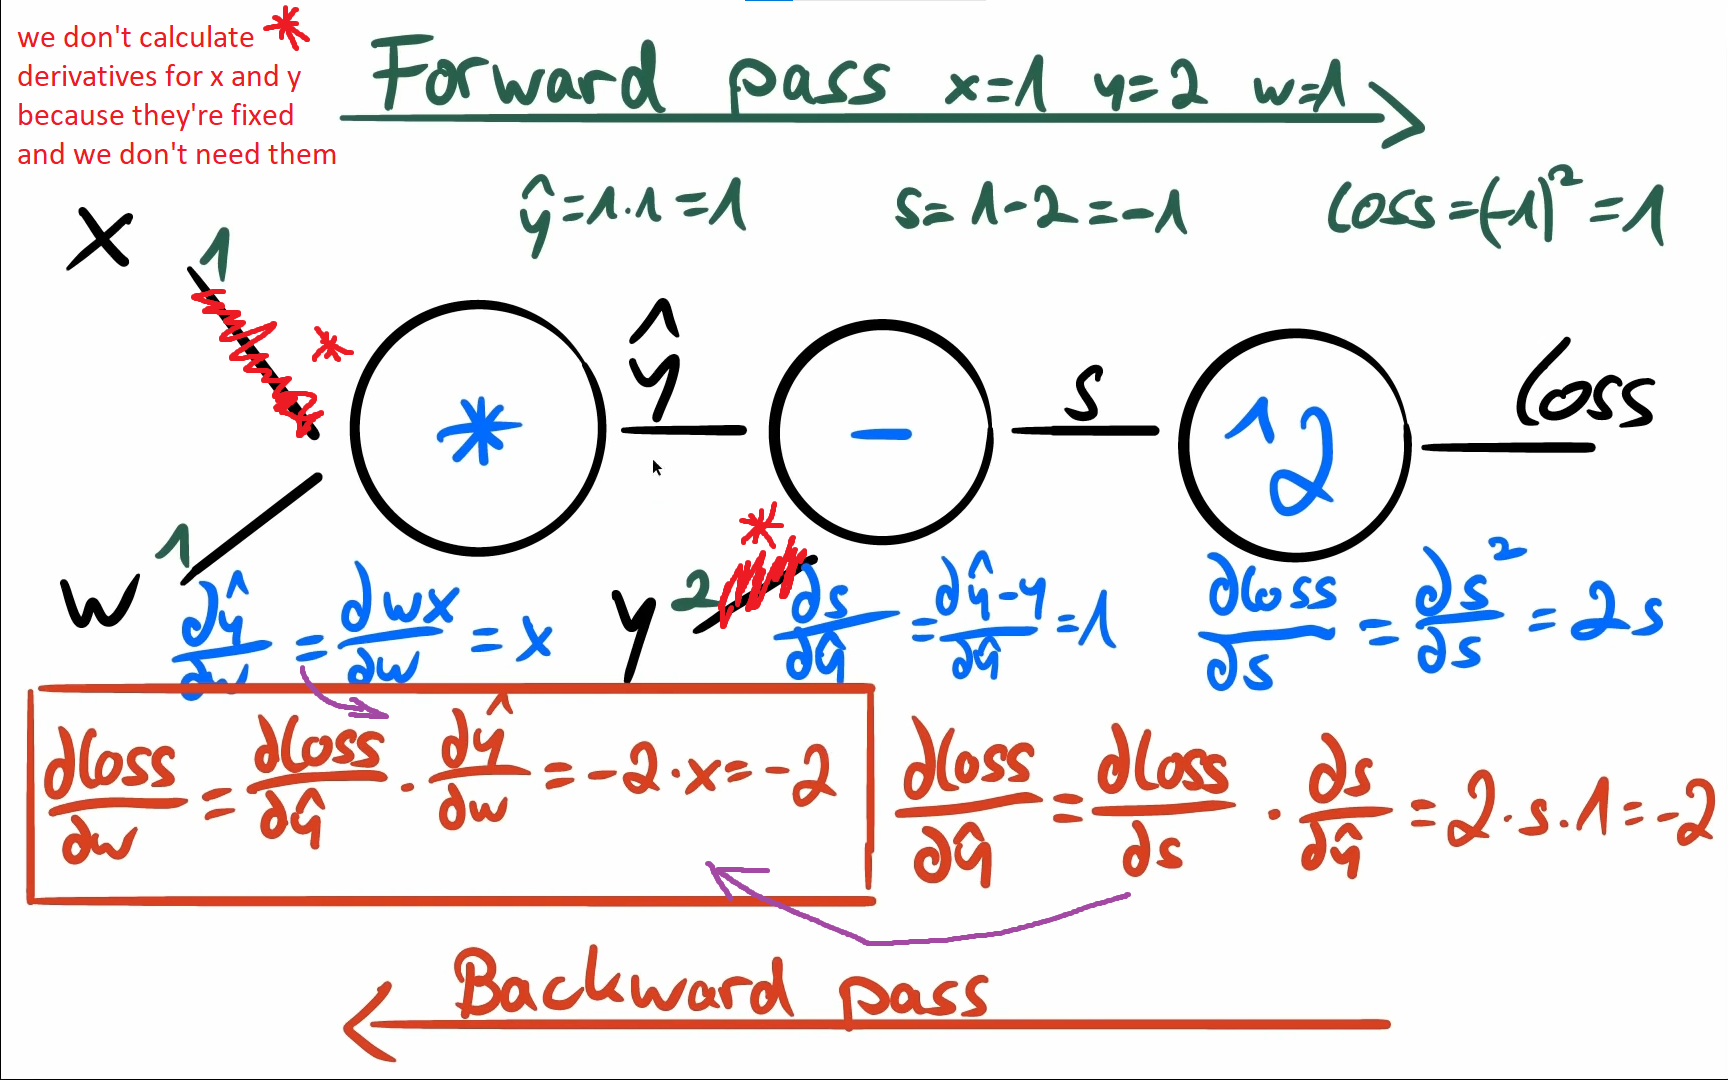 we don't calculate *
derivatives for x and y
because they're fixed
and we don't need them
Forward pass x=1 y=2 w=1
ŷ=1·1=1 s=1-2=-1 loss=(-1)²=1
x 1 *
* ŷ - s ^2 loss
*
w 1 y 2
∂ŷ/∂w = ∂wx/∂w = x ∂s/∂ŷ = ∂ŷ-y/∂ŷ = 1 ∂loss/∂s = ∂s²/∂s = 2s
∂loss/∂w = ∂loss/∂ŷ · ∂ŷ/∂w = -2·x = -2 ∂loss/∂ŷ = ∂loss/∂s · ∂s/∂ŷ = 2·s·1 = -2
Backward pass